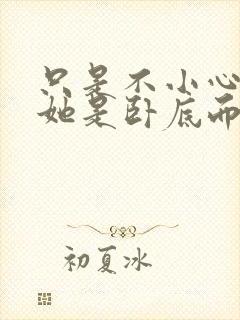 只是不小心
她是卧底而
初夏冰